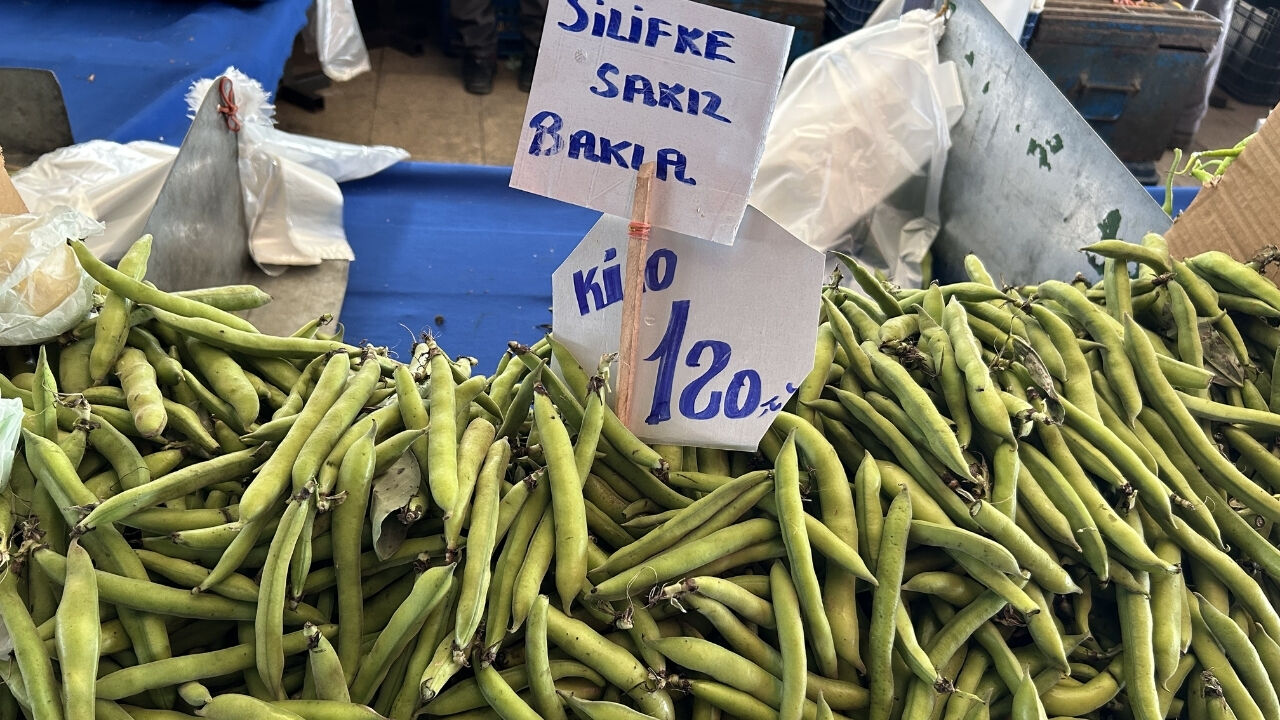 SİLİFKE
SAKIZ
BAKLA
KİLO
120 TL